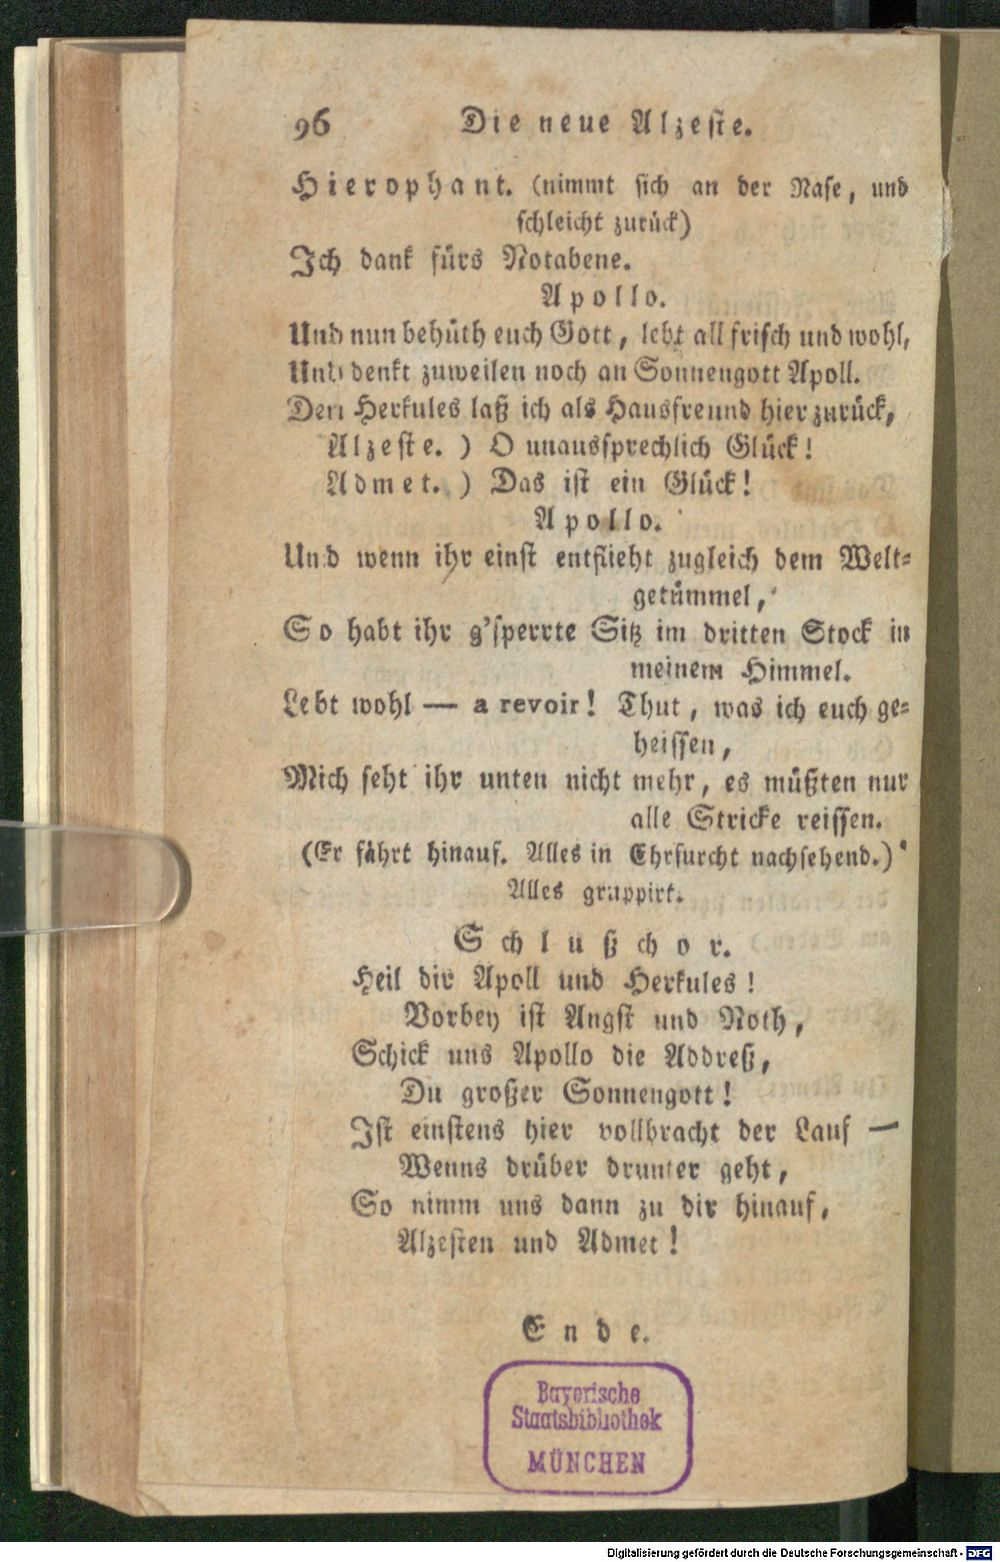 96 Die neue Alzeste.
Hierophant. (nimmt sich an der Nase, und
schleicht zurück)
Ich dank fürs Notabene.
Apollo.
Und nun behüth euch Gott, lebt all frisch und wohl,
Und denkt zuweilen noch an Sonnengott Apoll.
Den Herkules laß ich als Hausfreund hier zurück,
Alzeste. ) O unaussprechlich Glück!
Admet. ) Das ist ein Glück!
Apollo.
Und wenn ihr einst entflieht zugleich dem Welt-
getümmel,
So habt ihr g'sperrte Sitz im dritten Stock in
meinem Himmel.
Lebt wohl — a revoir! Thut, was ich euch ge-
heissen,
Mich seht ihr unten nicht mehr, es müßten nur
alle Stricke reissen.
(Er fährt hinauf. Alles in Ehrfurcht nachsehend.)
Alles gruppirt.
Schlußchor.
Heil dir Apoll und Herkules!
Vorbey ist Angst und Noth,
Schick uns Apollo die Addreß,
Du großer Sonnengott!
Ist einstens hier vollbracht der Lauf —
Wenns drüber drunter geht,
So nimm uns dann zu dir hinauf,
Alzesten und Admet!
Ende.
Bayerische
Staatsbibliothek
MÜNCHEN
Digitalisierung gefördert durch die Deutsche Forschungsgemeinschaft - DFG